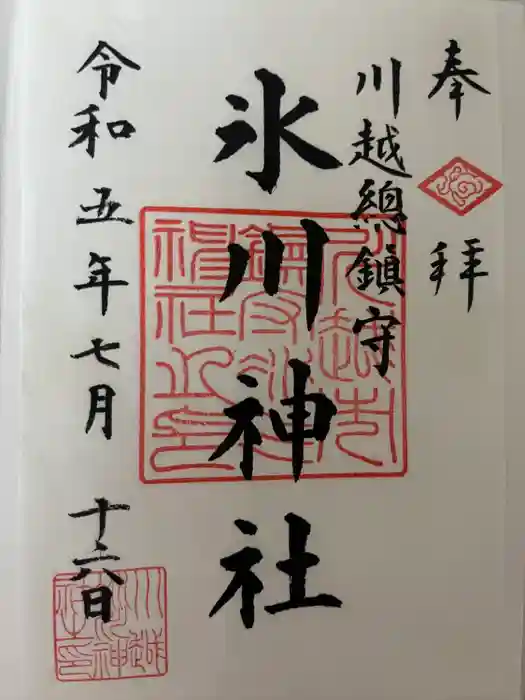 奉拝
川越總鎮守
氷川神社
令和五年七月十六日